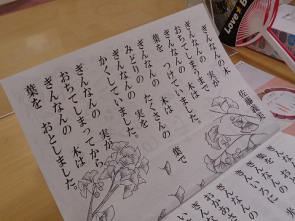 ぎんなんの 木
佐藤義美
ぎんなんの 実が
おちてしまうまで
ぎんなんの 木は
葉を つけていました。
ぎんなんの たくさんの
みどりの 実を
ぎんなんの 木は 葉で
かくしていました。
ぎんなんの 実が
おちてしまってから
ぎんなんの 木は
葉を おとしました。
Love